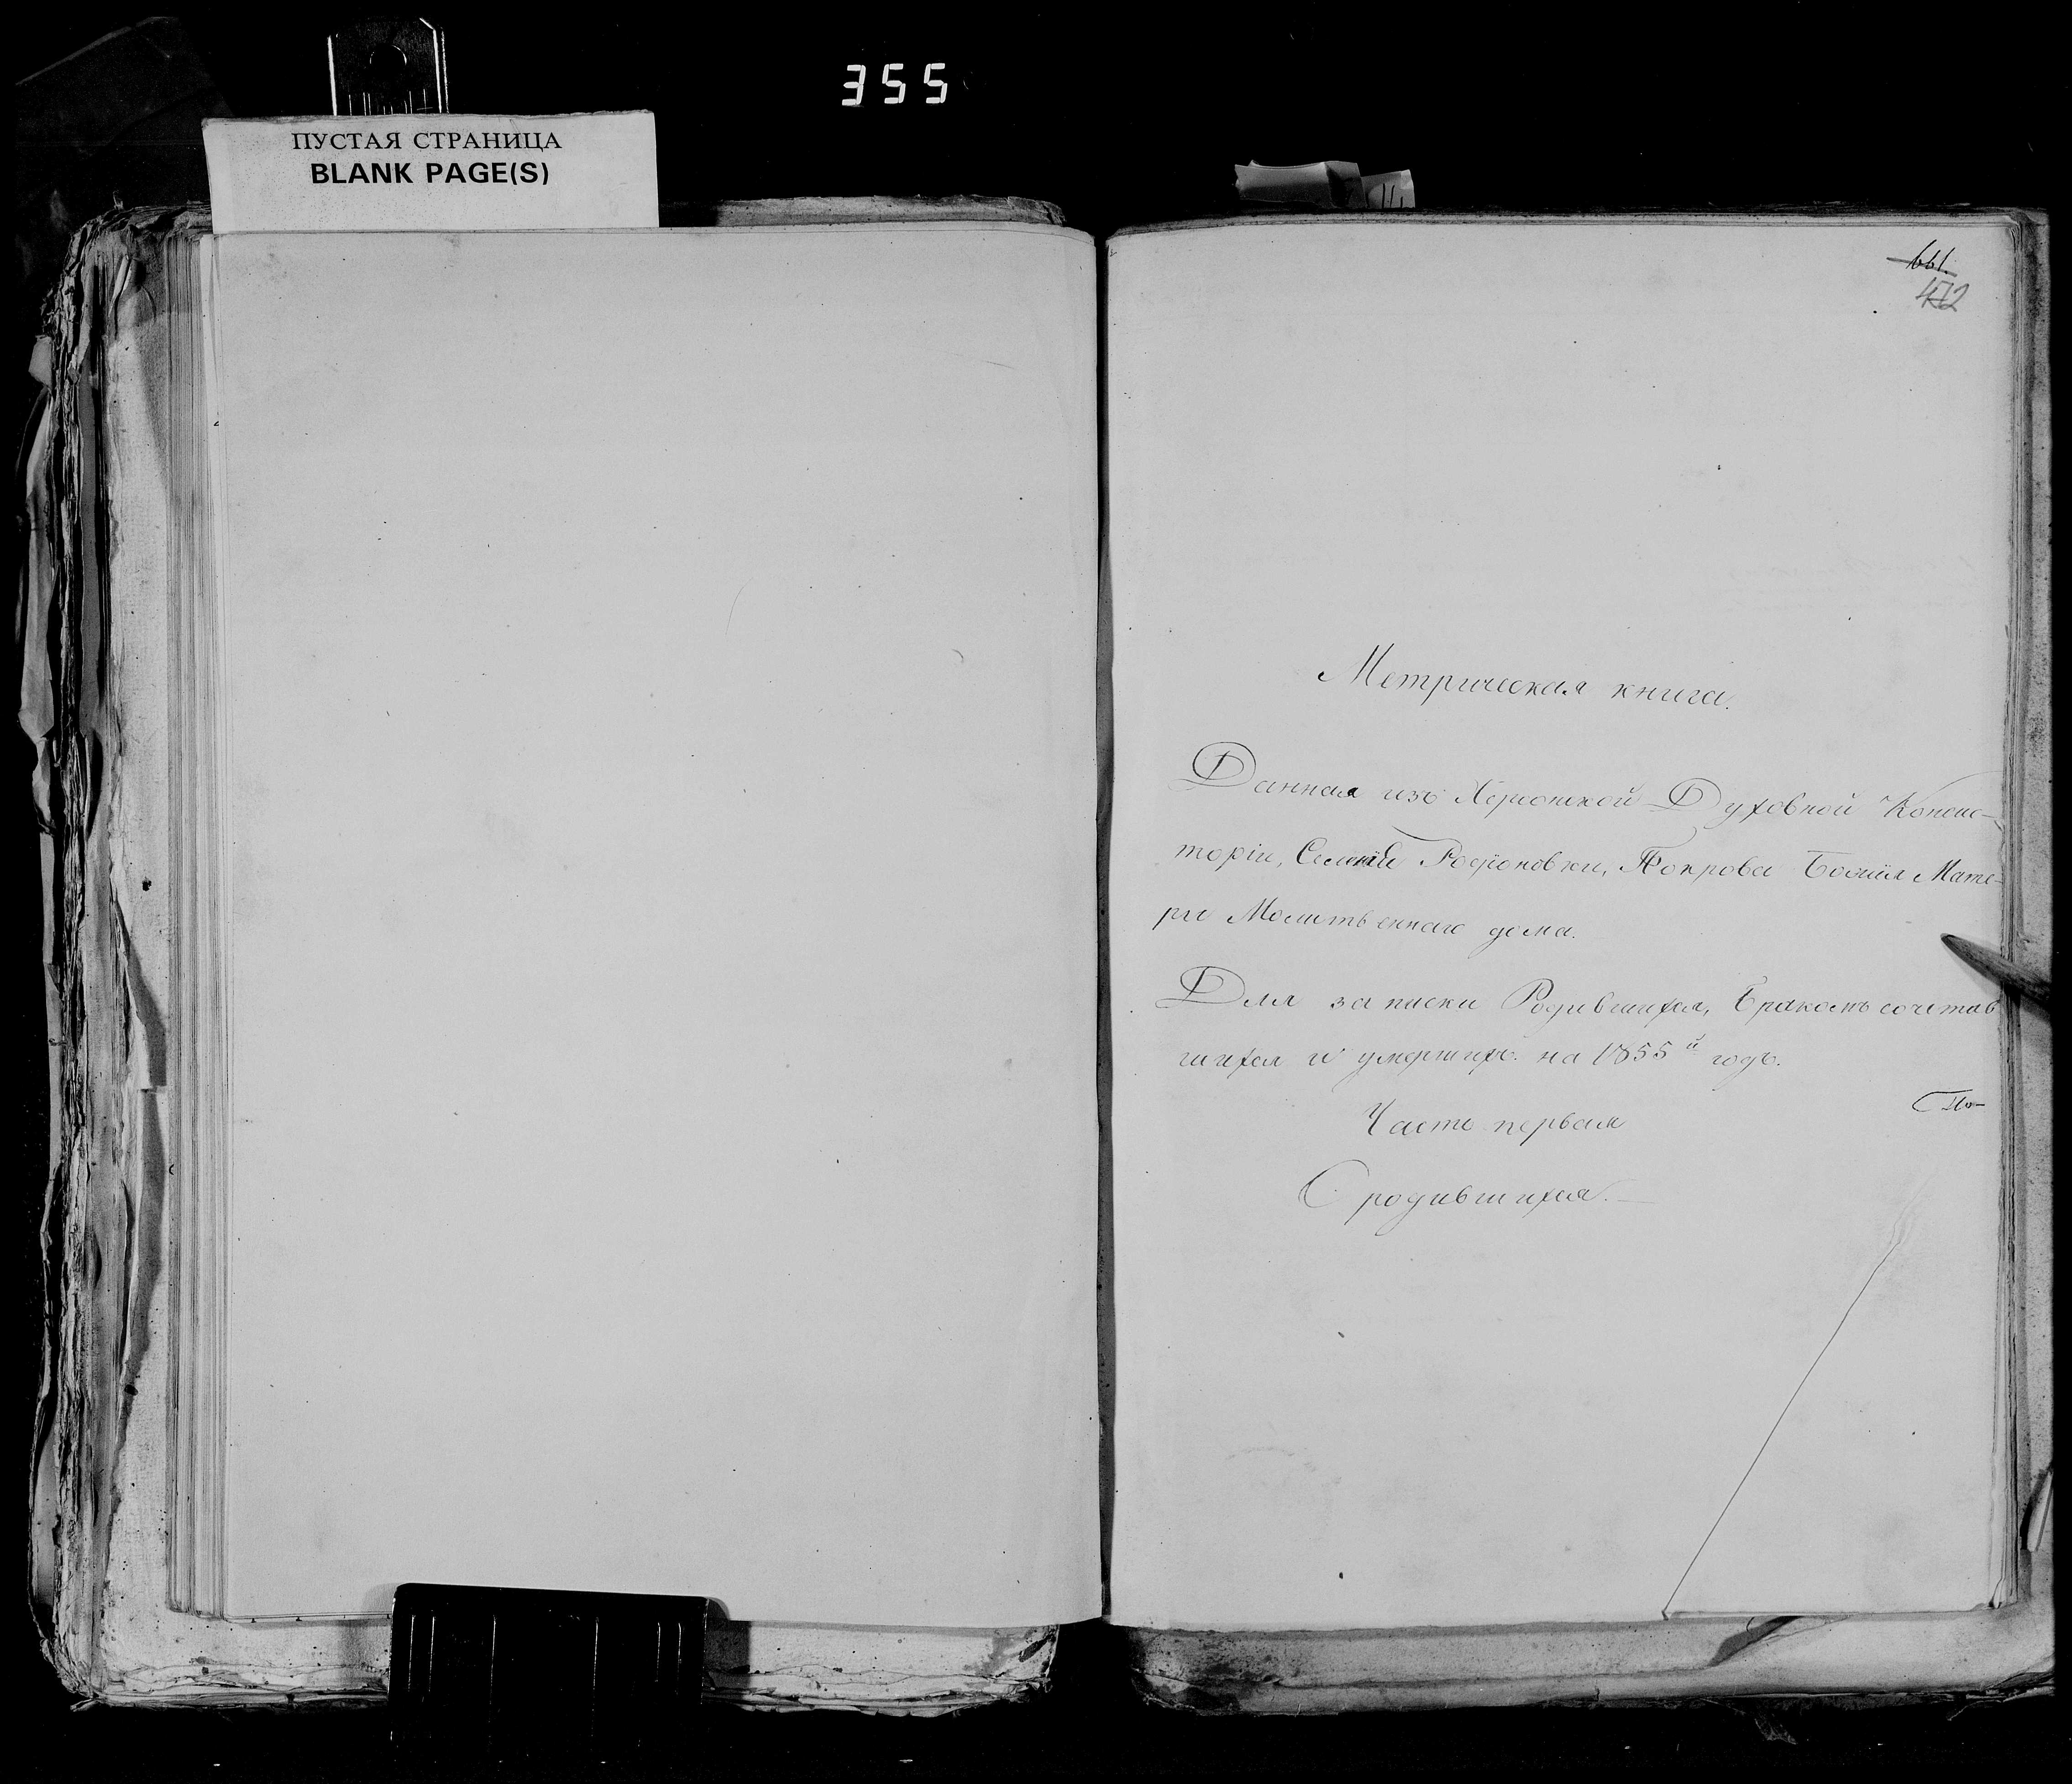 355
ПУСТАЯ СТРАНИЦА
BLANK PAGE(S)
661.
472
Метрическая книга.
Данная изъ Херсонской Духовной Консис-
торіи, Родіоновки, Покрова Божія Мате-
ри Молитвеннаго дома.
Для записки Родившихся, Бракомъ сочетав
шихся и умершихъ. на 1855й годъ.
По-
Часть первая
О родившихся.